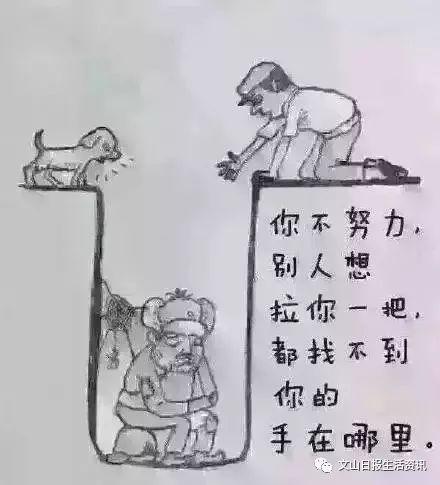 你不努力，
别人想
拉你一把，
都找不到
你的
手在哪里。
文山日报生活资讯